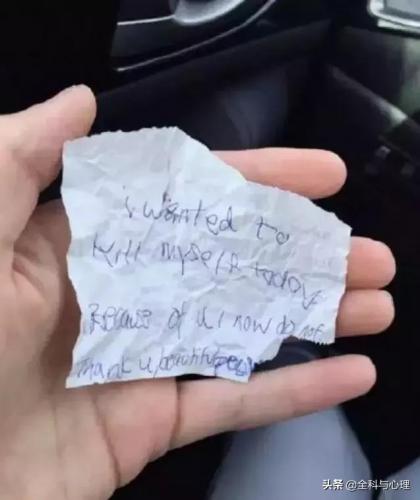 i wanted to
kill myself today
Because of u i now do not.
Thank u beautiful
头条 @全科与心理